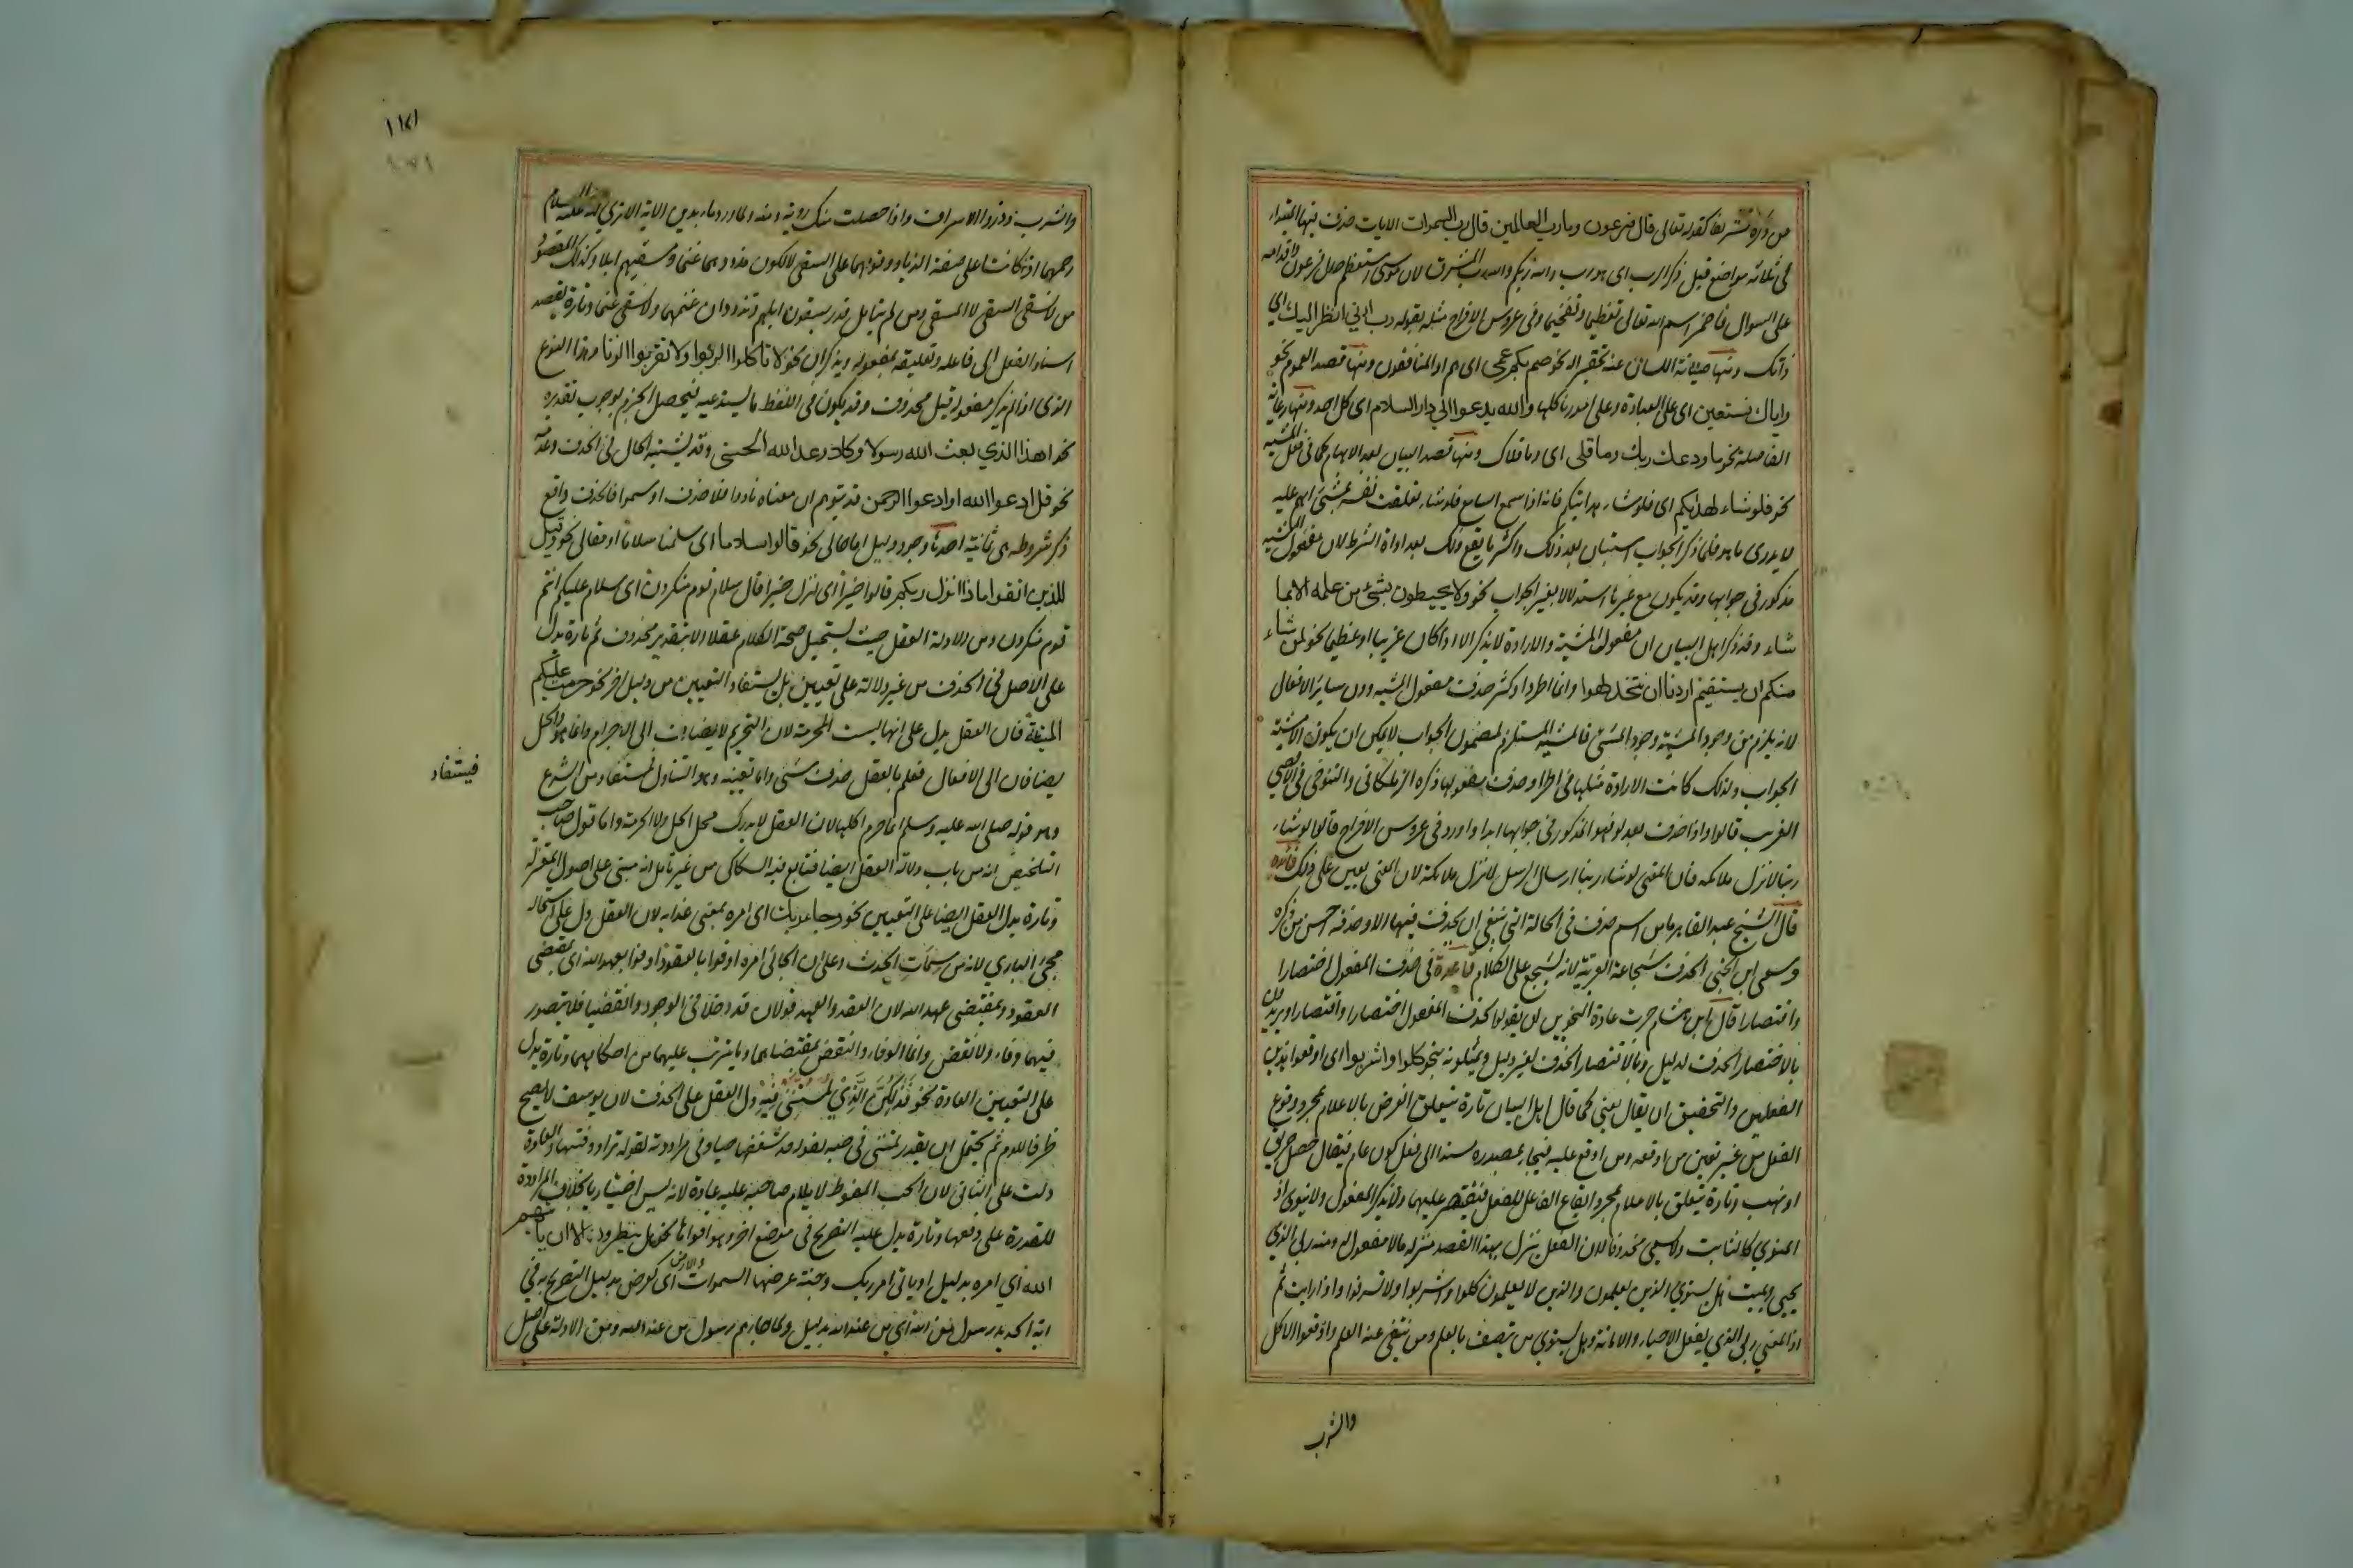 من ذكره تشريفا كقوله تعالى قال فرعون وما رب العالمين قال رب السموات الايات حذف فيها المبتدا
في ثلاثة مواضع قبل ذكر الرب اى هو رب والله ربكم والله رب المشرق لان موسى استعظم حال فرعون واقدامه
على السوال فاضمر اسم الله تعالى تعظيما وتفخيما وفى عروس الافراح مثله بقوله رب ارنى انظر اليك اى
ذاتك ومنها صيانة اللسان عنه تحقيرا له نحو صم بكم عمى اى هم او المنافقون ومنها قصد العموم نحو
واياك نستعين اى على العبادة وعلى امورنا كلها والله يدعوا الى دار السلام اى كل احد ومنها رعاية
الفاصلة نحو ما ودعك ربك وما قلى اى وما قلاك ومنها قصد البيان بعد الابهام كما فى فعل المشية
نحو فلو شاء لهداكم اى فلو شاء هدايتكم فانه اذا سمع السامع فلو شاء تعلقت نفسه بمشئ ابهم عليه
لا يدرى ما هو فلما ذكر الجواب استبان بعد ذلك واكثر ما يقع ذلك بعد اداة الشرط لان مفعول المشية
مذكور فى جوابها وقد يكون مع غيرها استدلالا بغير الجواب نحو ولا يحيطون بشئ من علمه الا بما
شاء وقد ذكر اهل البيان ان مفعول المشية والارادة لا يذكر الا اذا كان غريبا او عظيما نحو لمن شاء
منكم ان يستقيم اردنا ان نتخذ لهوا وانما اطرد او كثر حذف مفعول المشيه دون سائر الافعال
لانه يلزم من وجود المشية وجود المشئ فالمشية المستلزم لمضمون الجواب لا يمكن ان يكون الا مشية
الجواب ولذلك كانت الارادة مثلها فى اطراد حذف مفعولها ذكره الزملكانى والتنوخى فى الاقصى
القريب قالوا واذا حذف بعد لو فهو المذكور فى جوابها ابدا واورد فى عروس الافراح قالوا لو شاء
ربنا لانزل ملائكة فان المعنى لو شاء ربنا ارسال الرسل لانزل ملائكة لان المعنى يعين على ذلك فائدة
قال الشيخ عبد القاهر ما من اسم حذف فى الحالة التى ينبغى ان يحذف فيها الا وحذفه احسن من ذكره
وسمى ابن الجنى الحذف شجاعة العربية لانه يشجع على الكلام قاعدة فى حذف المفعول اختصارا
واقتصارا قال ابن هشام جرت عادة النحويين ان يقولوا بحذف المفعول اختصارا واقتصارا ويريدون
بالاختصار الحذف لدليل وبالاقتصار الحذف لغير دليل ويمثلونه بنحو كلوا واشربوا اى اوقعوا هذين
الفعلين والتحقيق ان يقال يعنى كما قال اهل البيان تارة يتعلق الغرض بالاعلام بمجرد وقوع
الفعل من غير تعيين من اوقعه ومن اوقع عليه فيجاء بمصدره مسندا الى فعل كون عام فيقال حصل حريق
او نهب وتارة يتعلق بالاعلام بمجرد ايقاع الفاعل للفعل فيقتصر عليهما ولا يذكر المفعول ولا ينوى اذ
المنوى كالثابت ولا يسمى محذوفا لان الفعل ينزل بهذا القصد منزله مالا مفعول له ومنه ربى الذي
يحيى ويميت هل يستوى الذين يعلمون والذين لا يعلمون كلوا واشربوا ولا تسرفوا واذا رايت ثم
اذ المعنى ربى الذي يفعل الاحياء والاماتة وهل يستوى من يتصف بالعلم ومن ينتفى عنه العلم واوقعوا الاكل
والشرب
١١٤١
والشرب وذروا الاسراف واذا حصلت منك روية ومنه ولما ورد ماء مدين الاية الا ترى انه عليه السلام
رحمهما اذ كانتا على صفة الذياد وقومهما على السقى لا لكون مذودهما غنما ومسقيهم ابلا وكذلك المقصود
من لا نسقى السقى لا المسقى ومن لم يتامل قدر يسقون ابلهم وتذودان غنمهما ولا نسقى غنما وتارة يقصد
اسناد الفعل الى فاعله وتعليقه بمفعوله ويذكران نحو لا تاكلوا الربوا ولا تقربوا الزنا وهذا النوع
الذى اذا لم يذكر مفعوله قيل محذوف وقد يكون فى اللفظ ما يستدعيه فيحصل الجزم بوجوب تقديره
نحو اهذا الذي بعث الله رسولا وكلا وعد الله الحسنى وقد يشتبه الحال فى الحذف وعدمه
نحو قل ادعوا الله او ادعوا الرحمن قد يتوهم ان معناه نادوا فلا حذف او سموا فالحذف واقع
ذكر شروطه هى ثمانية احدها وجود دليل اما حالى نحو قالوا سلاما اى سلمنا سلاما او مقالى نحو وقيل
للذين اتقوا ماذا انزل ربكم قالوا خيرا اى انزل خيرا قال سلام قوم منكرون اى سلام عليكم انتم
قوم منكرون ومن الادلة العقل حيث يستحيل صحة الكلام عقلا الا بتقدير محذوف ثم تارة يدل
على الاصل فى الحذف من غير دلالة على تعيين بل يستفاد التعيين من دليل اخر نحو حرمت عليكم
الميتة فان العقل يدل على انها ليست المحرمة لان التحريم لا يضاف الى الاجرام وانما هو والحل
يضافان الى الافعال فعلم بالعقل حذف شئ واما تعيينه وهو التناول فمستفاد من الشرع
فيستفاد
وهو قوله صلى الله عليه وسلم انما حرم اكلها لان العقل لا يدرك محل الحل ولا الحرمة واما قول صاحب
التلخيص انه من باب دلالة العقل ايضا فتابع فيه السكاكى من غير تامل انه مبنى على اصول المعتزلة
وتارة يدل العقل ايضا على التعيين نحو وجاء ربك اى امره بمعنى عذابه لان العقل دل على استحالة
مجئ البارى لانه من سمات الحدث وعلى ان الجائى امره اوفوا بالعقود اوفوا بعهد الله اى بمقتضى
العقود وبمقتضى عهد الله لان العقد والعهد قولان قد دخلا فى الوجود وانقضيا فلا يتصور
فيهما وفاء ولا نقض وانما الوفاء والنقض بمقتضاهما وما يترتب عليهما من احكامهما وتارة يدل
على التعيين العادة نحو فذلكن الذي لمتننى فيه دل العقل على الحذف لان يوسف لا يصح
ظرفا للوم ثم يحتمل ان يقدر لمتننى فى حبه لقوله قد شغفها حبا وفى مراودته لقوله تراود فتيها والعادة
دلت على الثانى لان الحب المفرط لا يلام صاحبه عليه عادة لانه ليس اختياريا بخلاف المراودة
للقدرة على دفعها وتارة يدل عليه التصريح فى موضع اخر وهو اقواها نحو هل ينظرون الا ان ياتيهم
الله اي امره بدليل او ياتى امر ربك وجنة عرضها السموات والارض اى كعرض بدليل التصريح به فى
اية الحديد رسول من الله اى من عند الله بدليل ولما جاءهم رسول من عند الله ومن الادلة على اصل